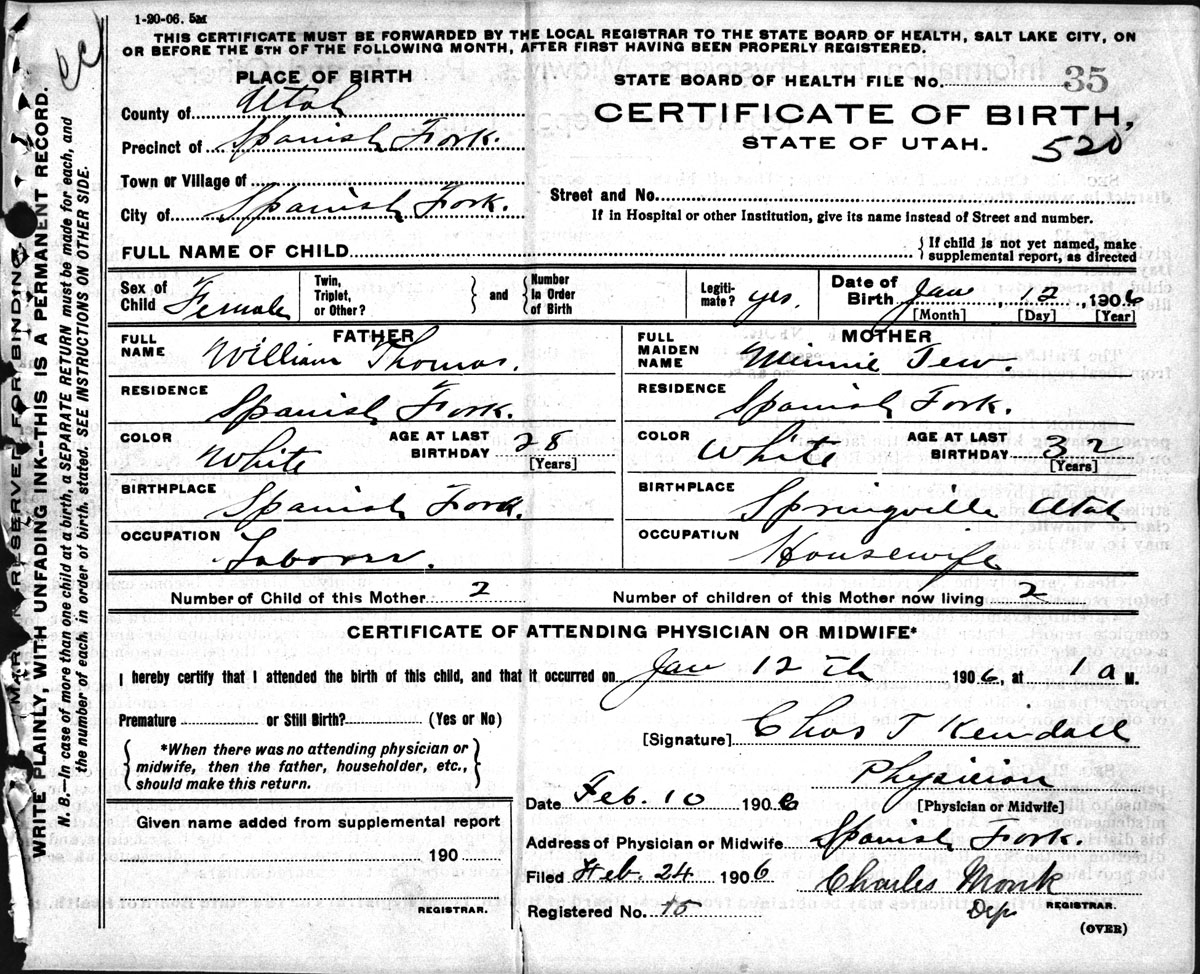 1-20-06. 5m
THIS CERTIFICATE MUST BE FORWARDED BY THE LOCAL REGISTRAR TO THE STATE BOARD OF HEALTH, SALT LAKE CITY, ON
OR BEFORE THE 5TH OF THE FOLLOWING MONTH, AFTER FIRST HAVING BEEN PROPERLY REGISTERED.
PLACE OF BIRTH
County of Utah
Precinct of Spanish Fork.
Town or Village of
City of Spanish Fork.
STATE BOARD OF HEALTH FILE No. 35
CERTIFICATE OF BIRTH,
STATE OF UTAH. 520
Street and No.
If in Hospital or other Institution, give its name instead of Street and number.
FULL NAME OF CHILD
{ If child is not yet named, make
supplemental report, as directed
Sex of Child Female
Twin, Triplet, or Other? } and { Number in Order of Birth
Legiti-mate? yes.
Date of Birth Jan, 12, 1906
[Month] [Day] [Year]
FATHER
FULL NAME William Thomas.
RESIDENCE Spanish Fork.
COLOR White AGE AT LAST BIRTHDAY 28
[Years]
BIRTHPLACE Spanish Fork.
OCCUPATION Laborer.
MOTHER
FULL MAIDEN NAME Minnie Tew.
RESIDENCE Spanish Fork.
COLOR White AGE AT LAST BIRTHDAY 32
[Years]
BIRTHPLACE Springville Utah
OCCUPATION Housewife
Number of Child of this Mother 2 Number of children of this Mother now living 2
CERTIFICATE OF ATTENDING PHYSICIAN OR MIDWIFE*
I hereby certify that I attended the birth of this child, and that it occurred on Jan 12th 1906, at 1 a M.
Premature or Still Birth? (Yes or No)
{ *When there was no attending physician or
midwife, then the father, householder, etc.,
should make this return. }
[Signature] Chas T Kendall
Physician
[Physician or Midwife]
Date Feb. 10 1906
Address of Physician or Midwife Spanish Fork.
Filed Feb. 24 1906 Charles Monk
Registered No. 15 Dep REGISTRAR.
(OVER)
Given name added from supplemental report
190
REGISTRAR.
MARGIN RESERVED FOR BINDING
WRITE PLAINLY, WITH UNFADING INK--THIS IS A PERMANENT RECORD.
N. B.—In case of more than one child at a birth, a SEPARATE RETURN must be made for each, and
the number of each, in order of birth, stated. SEE INSTRUCTIONS ON OTHER SIDE.